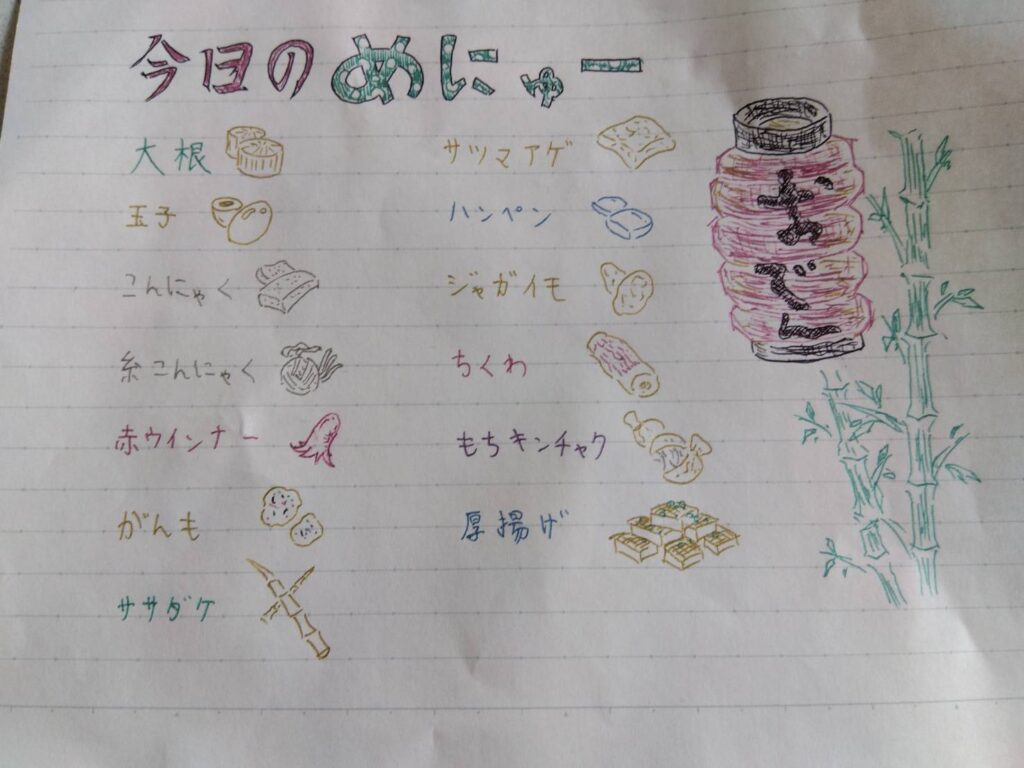 今日のめにゅー
大根
玉子
こんにゃく
糸こんにゃく
赤ウインナー
がんも
ササダケ
サツマアゲ
ハンペン
ジャガイモ
ちくわ
もちキンチャク
厚揚げ
おでん